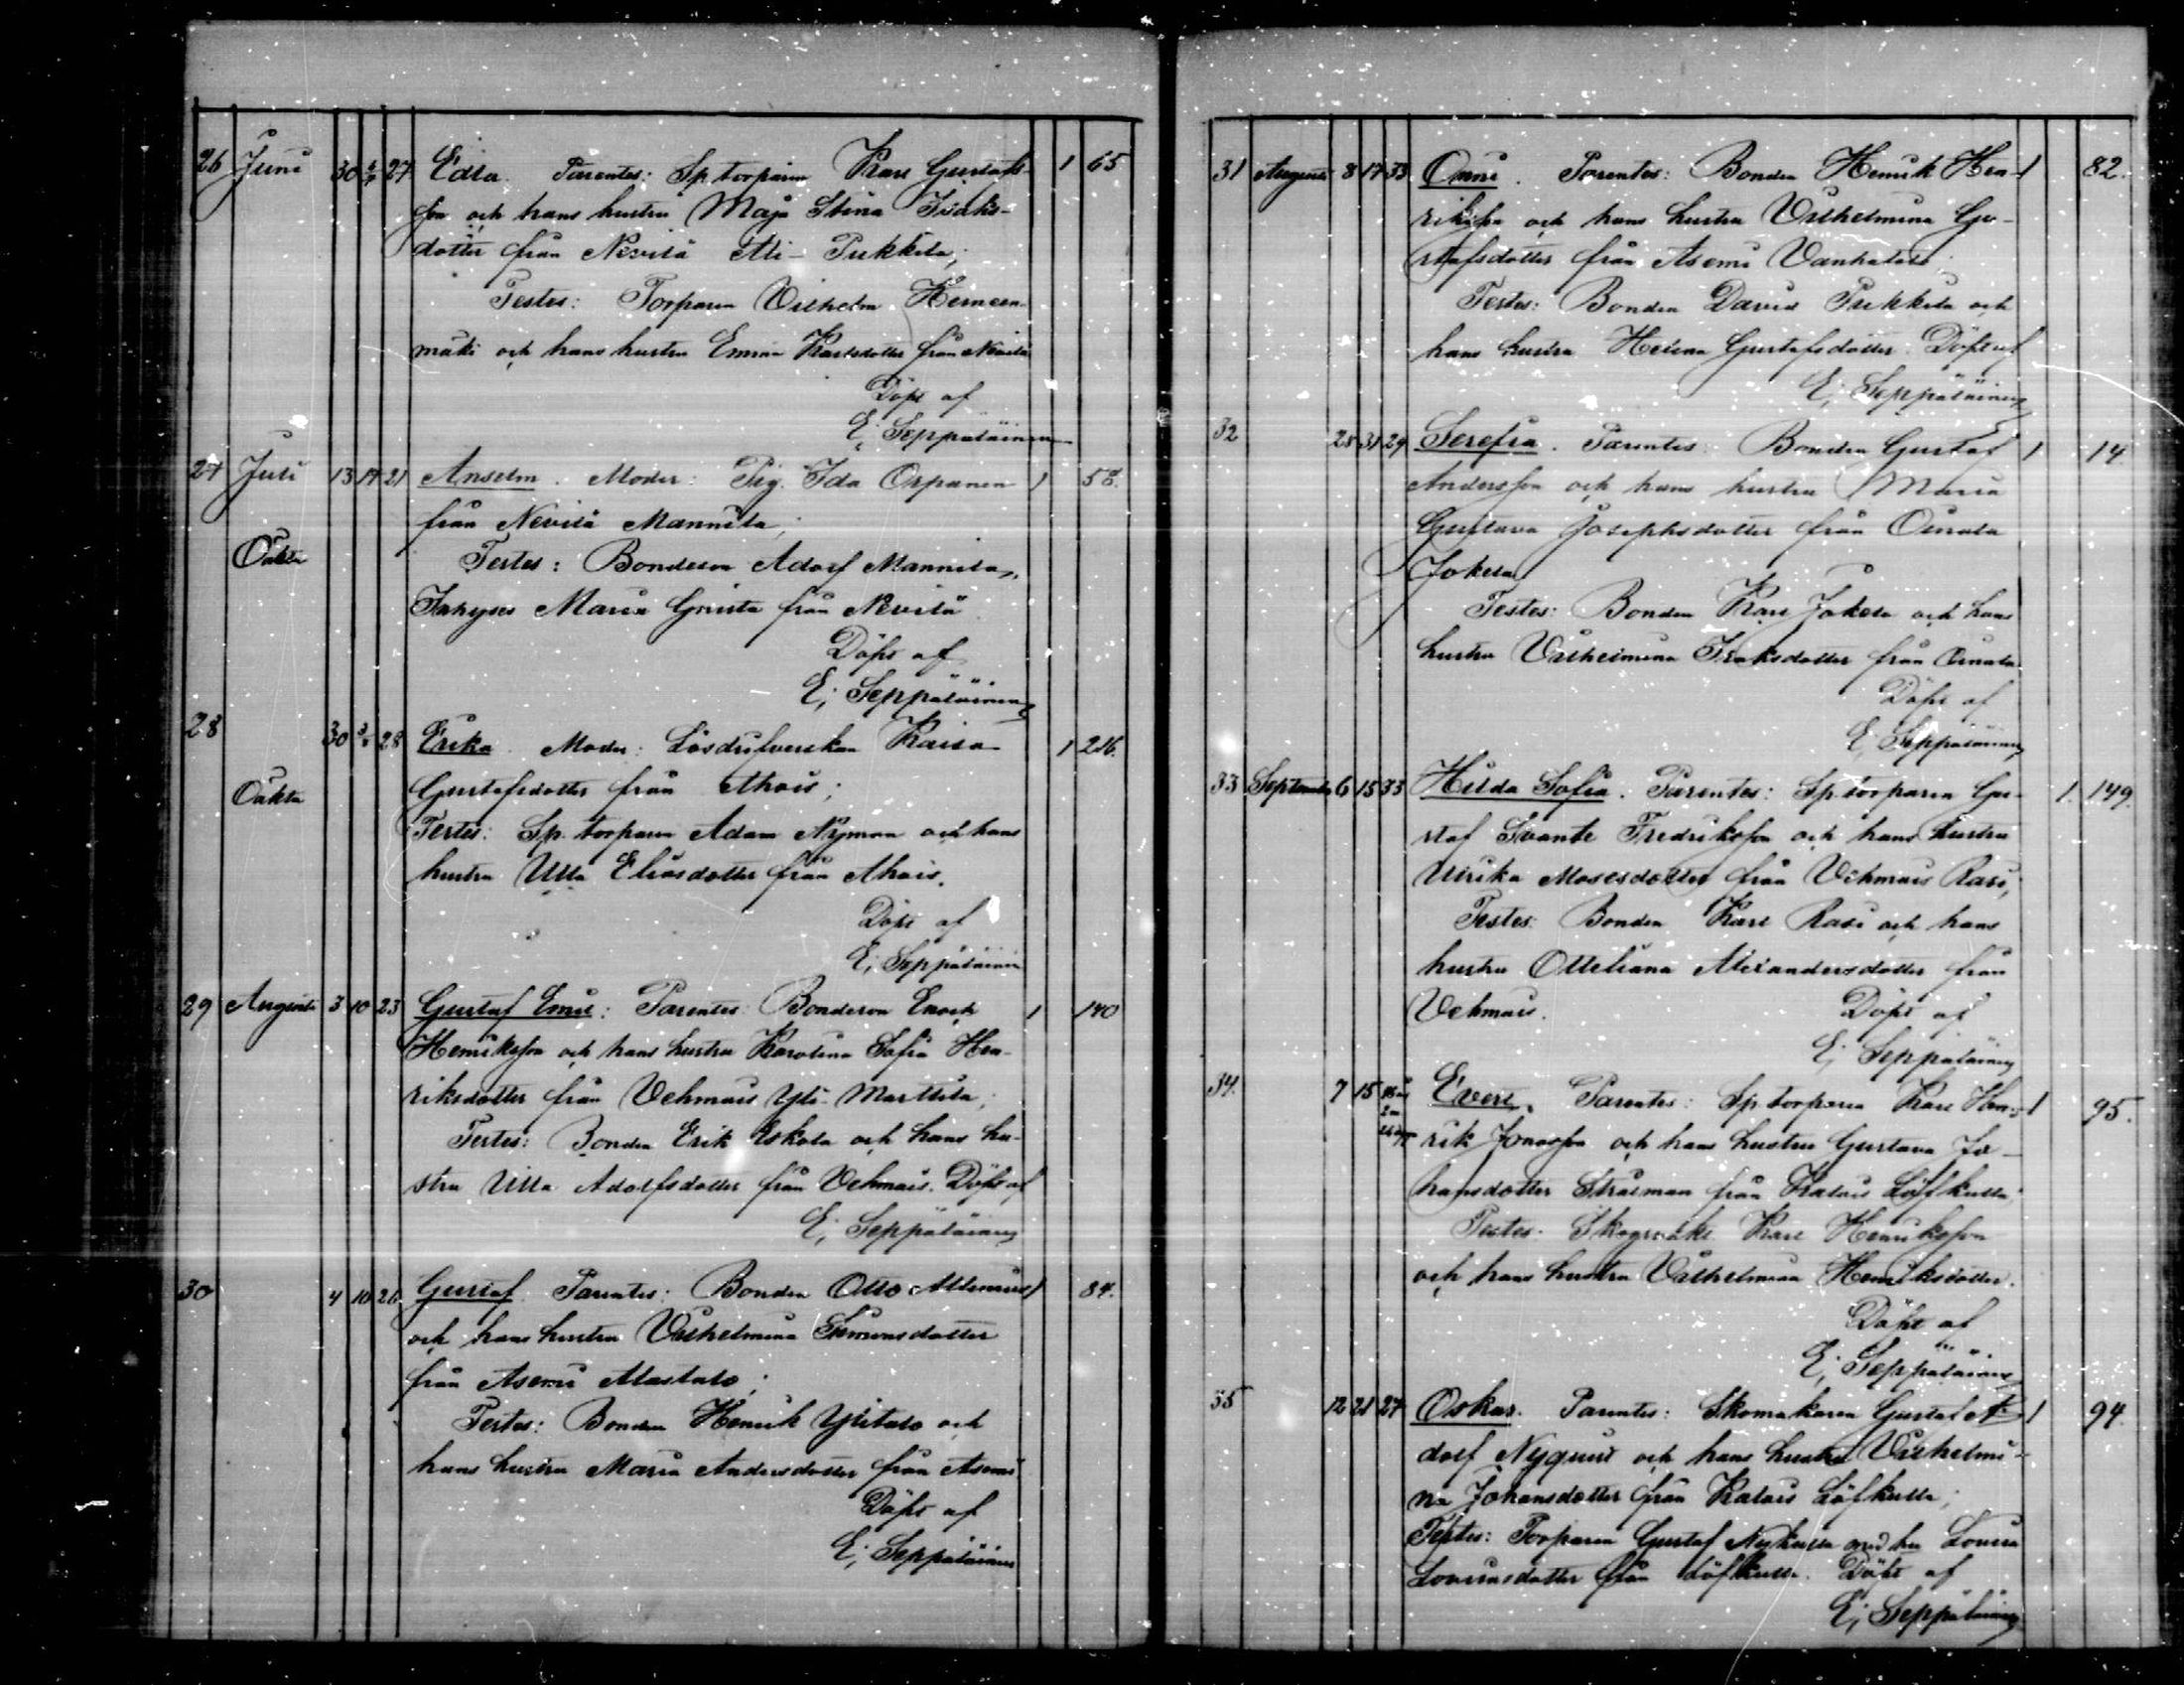 26 Juni 30 6/7 27 Edla. Parentes: Sp. torparen Karl Gustafs- 1 65
son och hans hustru Maja Stina Isaks-
dotter från Nevilä Ali-Pukkila;
Testes: Torparen Vilhelm Hemeen-
mäki och hans hustru Emma Karlsdotter från Nevilä
Döpt af
E; Seppäläinen
27 Juli 13 17 21 Anselm. Moder: Pig. Ida Orpanen 1 58.
från Nevilä Mannila;
Oäkta
Testes: Bondeson Adolf Mannila,
Inhyses Maria from Nevilä
Döpt af
E; Seppäläinen
28 30 3/8 28 Erika. Moder: Lösdrifverskan Kaisa 1 216.
Gustafsdotter från Ahais;
Oäkta
Testes: Sp. torparen Adam Nyman och hans
hustru Ulla Eliasdotter från Ahais.
Döpt af
E; Seppäläinen
29 Augusti 3 10 23 Gustaf Emil: Parentes: Bondeson Enoch 1 140
Henriksson och hans hustru Karolina Sofia Hen-
riksdotter från Vehmais Yli-Marttila;
Testes: Bonden Erik Eskola och hans hu-
stru Ulla Adolfsdotter från Vehmais. Döpt af
E; Seppäläinen
30 4 10 26 Gustaf. Parentes: Bonden Otto 1 84.
och hans hustru Vilhelmina Simonsdotter
från Asemi Alastalo;
Testes: Bonden Henrik Ylitalo och
hans hustru Maria Andersdotter från Asemi
Döpt af
E; Seppäläinen
31 Augusti 8 17 33 Onni. Parentes: Bonden Henrik Hen- 1 82.
riksson och hans hustru Vilhelmina Gu-
stafsdotter från Asemi Vanhatalo
Testes: Bonden David Pukkila och
hans hustru Helena Gustafsdotter. Döpt af
E; Seppäläinen
32 28 31 29 Serefia. Parentes: Bonden Gustaf 1 14.
Andersson och hans hustru Maria
Gustava Josephsdotter från Oinala
Jokela
Testes: Bonden Karl Jokela och hans
hustru Vilhelmina Isaksdotter från Oinala
Döpt af
E; Seppäläinen
33 September 6 15 33 Hilda Sofia. Parentes: Sp. torparen Gu- 1. 149.
staf Svante Fredriksson och hans hustru
Ulrika Mosesdotter från Vehmais Rasi;
Testes: Bonden Karl Rasi och hans
hustru Otteliana Alexandersdotter från
Vehmais. Döpt af
E; Seppäläinen
34. 7 15 Evert. Parentes: Sp. torparen Karl Hen- 1 95.
rik Jonasson och hans hustru Gustava Jo-
hansdotter Strålman från Kalais Löfkulla;
Testes: Karl Henriksson
och hans hustru Vilhelmina Henriksdotter.
Döpt af
E; Seppäläinen
35 12 21 27 Oskar. Parentes: Skomakaren Gustaf A- 1 94.
dolf Nyquist och hans hustru Vilhelmi-
na Johansdotter från Kalais Löfkulla;
Testes: Torparen Gustaf Nykulla med hu Lovisa
dotter från Löfkulla. Döpt af
E; Seppäläinen